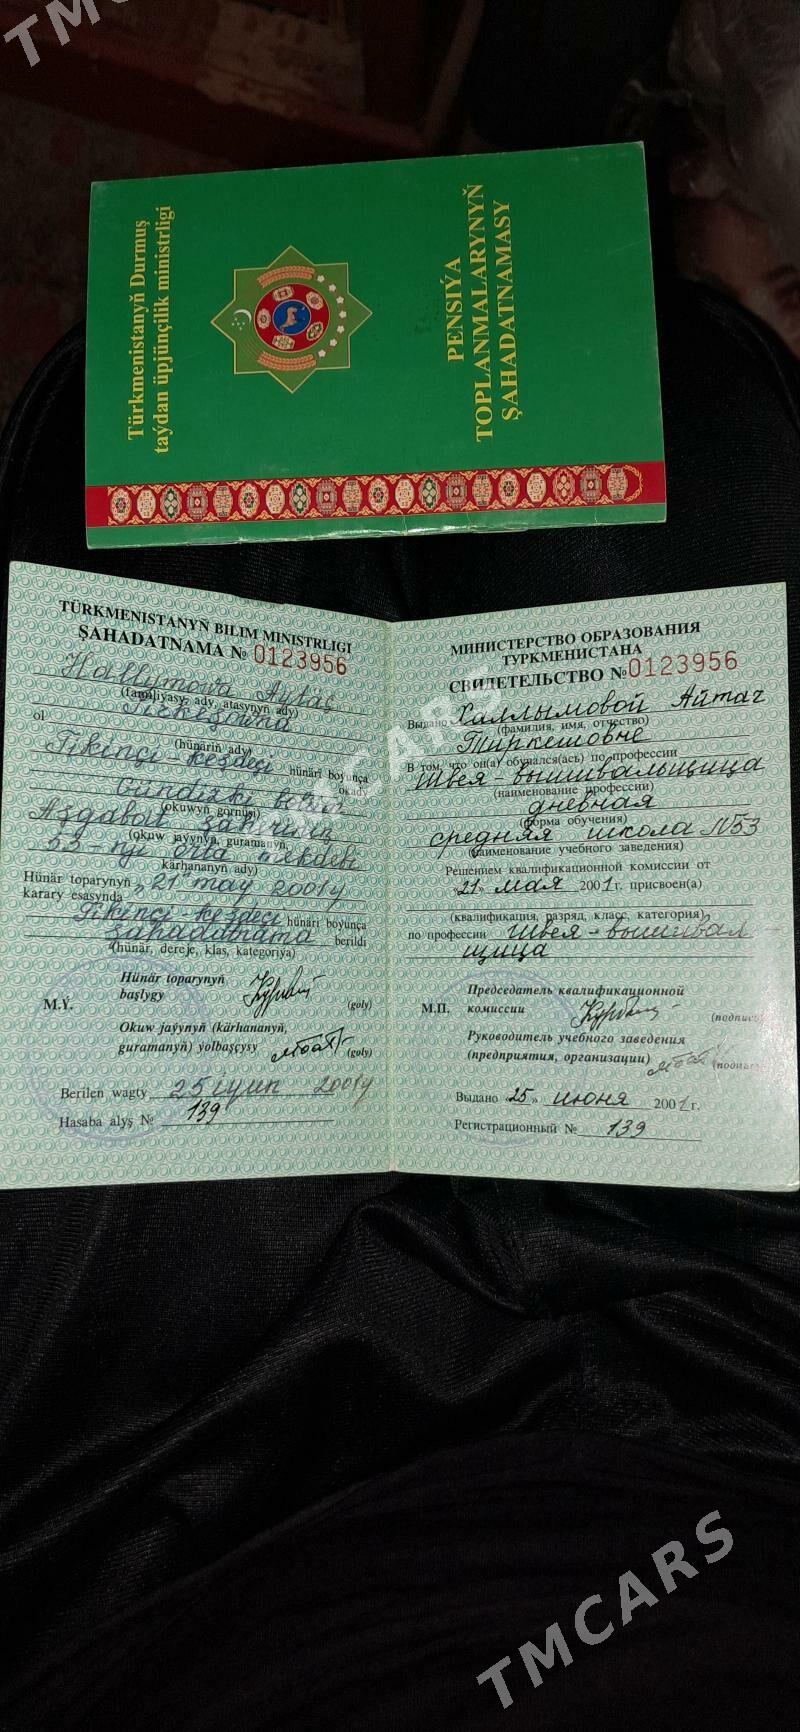 TMCARS
Türkmenistanyň Durmuş
taýdan üpjünçilik ministrligi
PENSIÝA
TOPLANMALARYNYŇ
ŞAHADATNAMASY
TÜRKMENISTANYŇ BILIM MINISTRLIGI
ŞAHADATNAMA № 0123956
Hallymowa Aýtäç
(familiýasy, ady, atasynyň ady)
Tirkeşowna
ol
(hünäriň ady)
Tikinçi-keşdeçi hünäri boýunça
okady
Gündizki bölüm
(okuwyň görnüşi)
Aşgabat şäheriniň
(okuw jaýynyň, guramanyň,
53-nji orta mekdebi
kärhananyň ady)
Hünär toparynyň
karary esasynda 21 maý 2001ý
Tikinçi-keşdeçi hünäri boýunça
şahadatnama berildi
(hünär, dereje, klas, kategoriýa)
Hünär toparynyň
başlygy
(goly)
M.Ý.
Okuw jaýynyň (kärhananyň,
guramanyň) ýolbaşçysy
(goly)
Berilen wagty 25 iýun 2001ý
Hasaba alyş № 139
МИНИСТЕРСТВО ОБРАЗОВАНИЯ
ТУРКМЕНИСТАНА
СВИДЕТЕЛЬСТВО № 0123956
Выдано Халлымовой Айтач
(фамилия, имя, отчество)
Тиркешовне
В том, что он(а) обучался(ась) по профессии
Швея-вышивальщица
(наименование профессии)
дневная
(форма обучения)
средняя школа №53
(наименование учебного заведения)
Решением квалификационной комиссии от
«21» мая 2001 г. присвоен(а)
(квалификация, разряд, класс, категория)
по профессии Швея-вышивал
щица
Председатель квалификационной
комиссии
(подпись)
М.П.
Руководитель учебного заведения
(предприятия, организации)
(подпись)
Выдано «25» июня 2001 г.
Регистрационный № 139
TMCARS
TMCARS